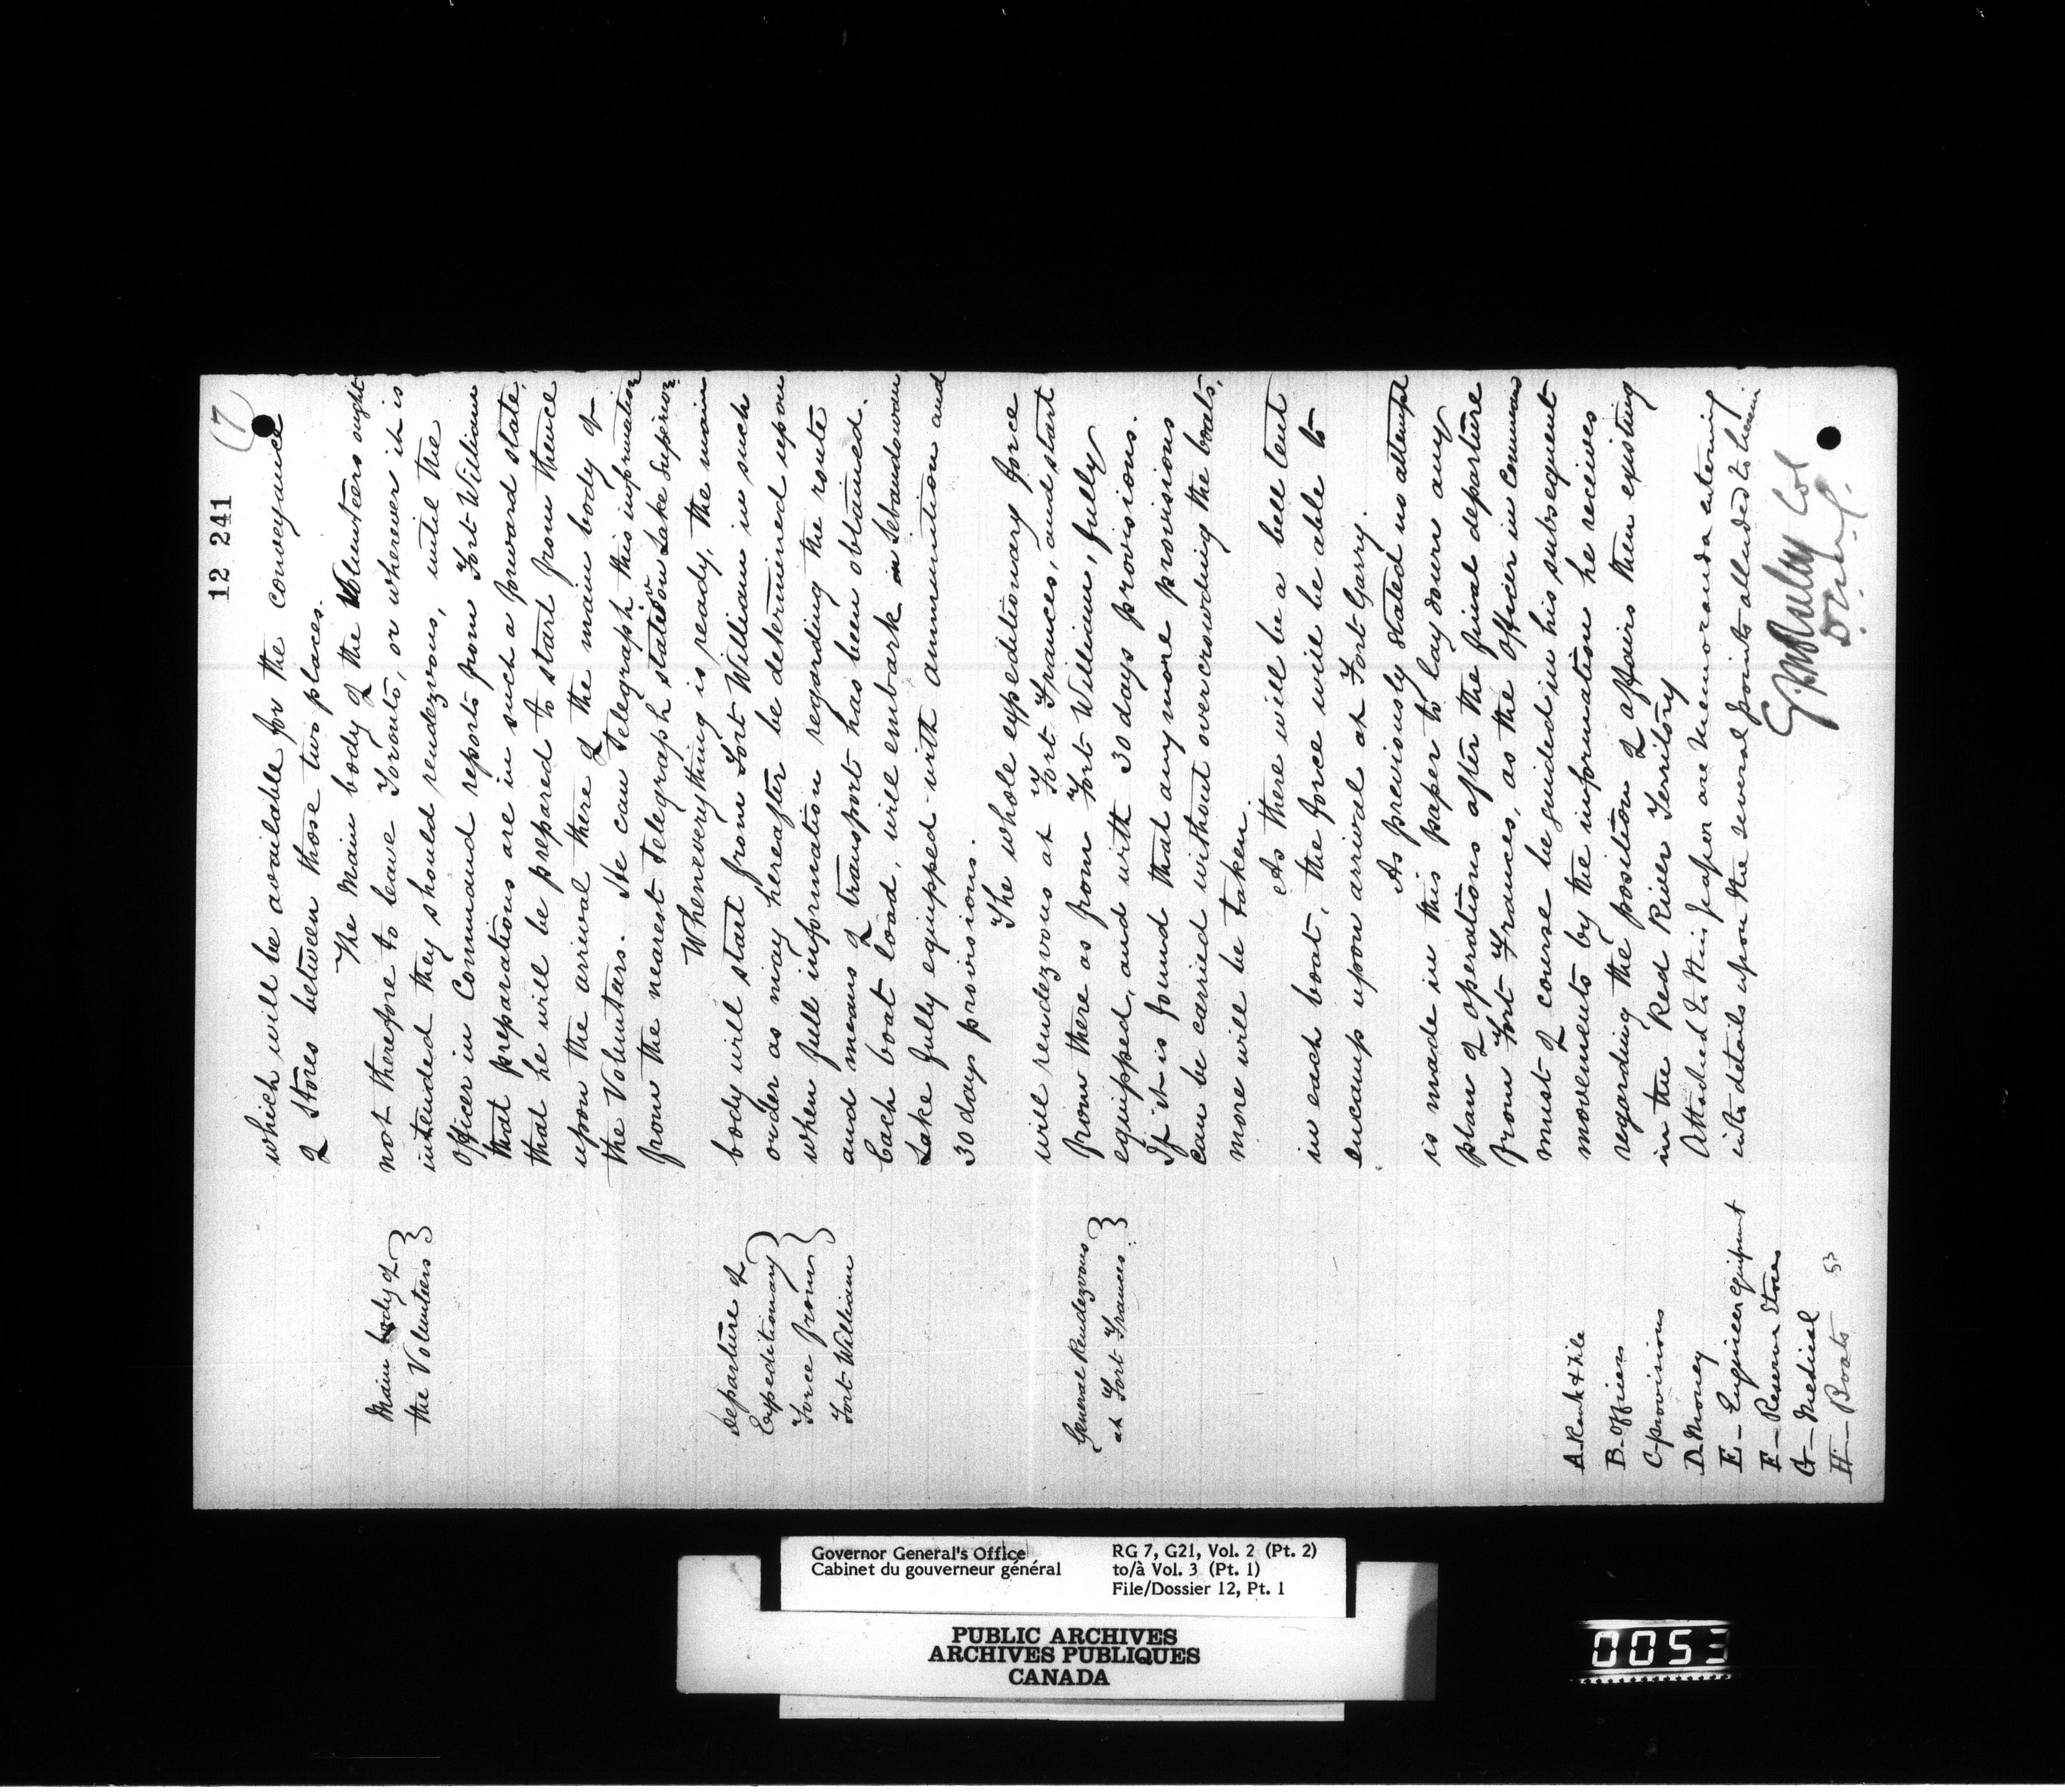 12 241
(7
which will be available for the conveyance
of Stores between those two places.
Main body of
the Volunteers
The Main body of the Volunteers ought
not therefore to leave Toronto, or wherever it is
intended they should rendezvous, until the
Officer in Command reports from Fort William
that preparations are in such a forward state,
that he will be prepared to start from thence
upon the arrival there of the main body of
the Volunteers. He can telegraph this information
from the nearest telegraph station on Lake Superior.
Departure of
Expeditionary
Force from
Fort William
Whenever everything is ready, the main
body will start from Fort William in such
order as may hereafter be determined upon
when full information regarding the route
and means of transport has been obtained.
Each boat load, will embark on Sebandowan
Lake fully equipped with ammunition and
30 days provisions.
General Rendezvous
at Fort Frances.
The whole expeditionary force
will rendezvous at Fort Frances, and start
from there as from Fort William, fully
equipped, and with 30 days provisions.
If it is found that any more provisions
can be carried without overcrowding the boats,
more will be taken.
As there will be a bell tent
in each boat, the force will be able to
encamp upon arrival at Fort Garry.
As previously stated no attempt
is made in this paper to lay down any
plan of operations after the final departure
from Fort Frances, as the Officer in Command
must of course be guided in his subsequent
movements by the information he receives
regarding the position of affairs then existing
in the Red River Territory
Attached to this paper are Memoranda entering
into details upon the several points alluded to herein
Col
D.Q.M.G.
A. Rank & File
B. Officers
C. provisions
D. Money
E — Engineer equipment
F — Reserve Stores
G — Medical
H — Boats
53
Governor General's Office
Cabinet du gouverneur général
RG 7, G21, Vol. 2 (Pt. 2)
to/à Vol. 3 (Pt. 1)
File/Dossier 12, Pt. 1
PUBLIC ARCHIVES
ARCHIVES PUBLIQUES
CANADA
0053